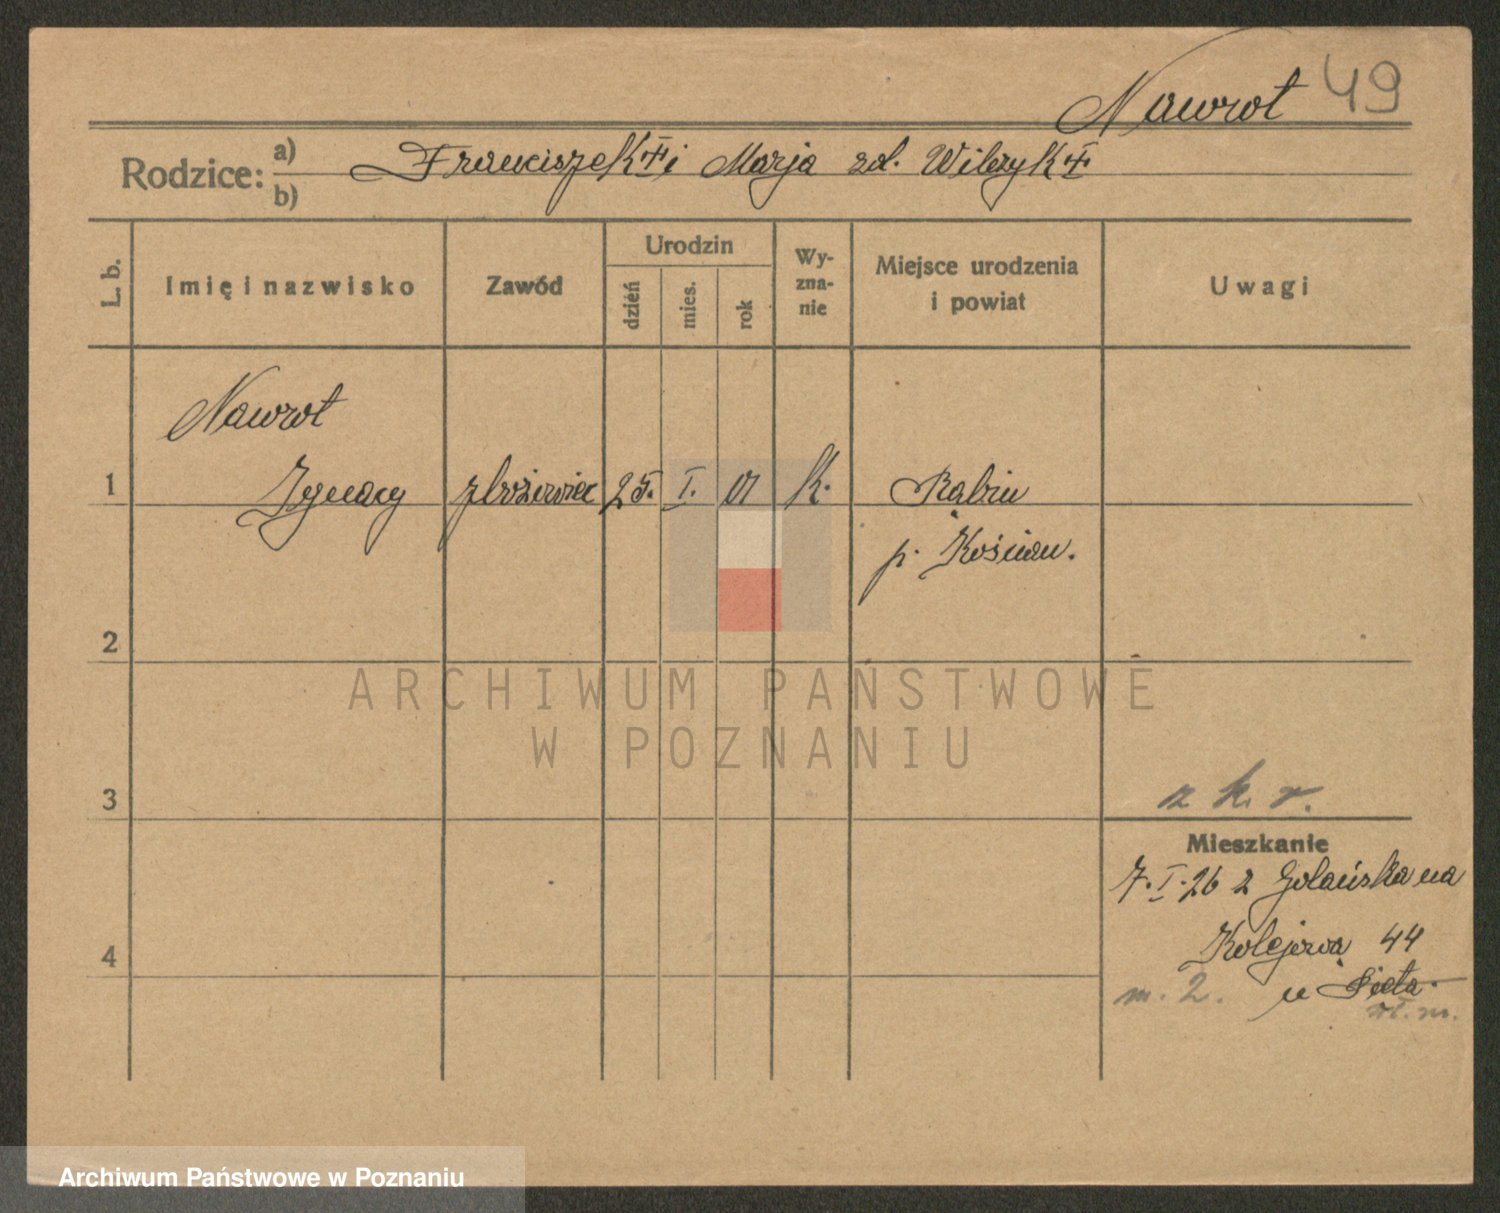 Nawrot 49
Rodzice: a) Franciszek i Marja zd. Wilczyk
b)
L. b.
Imię i nazwisko
Zawód
Urodzin
dzień
mies.
rok
Wy-
zna-
nie
Miejsce urodzenia
i powiat
Uwagi
Nawrot
1 Ignacy 25. I. 01 K. Rąbiń
p. Kościan.
2
ARCHIWUM PAŃSTWOWE
W POZNANIU
3
z k. r.
Mieszkanie
7. I. 26 z Golańska na
Kolejową 44
4
m. 2. u
wł. m.
Archiwum Państwowe w Poznaniu